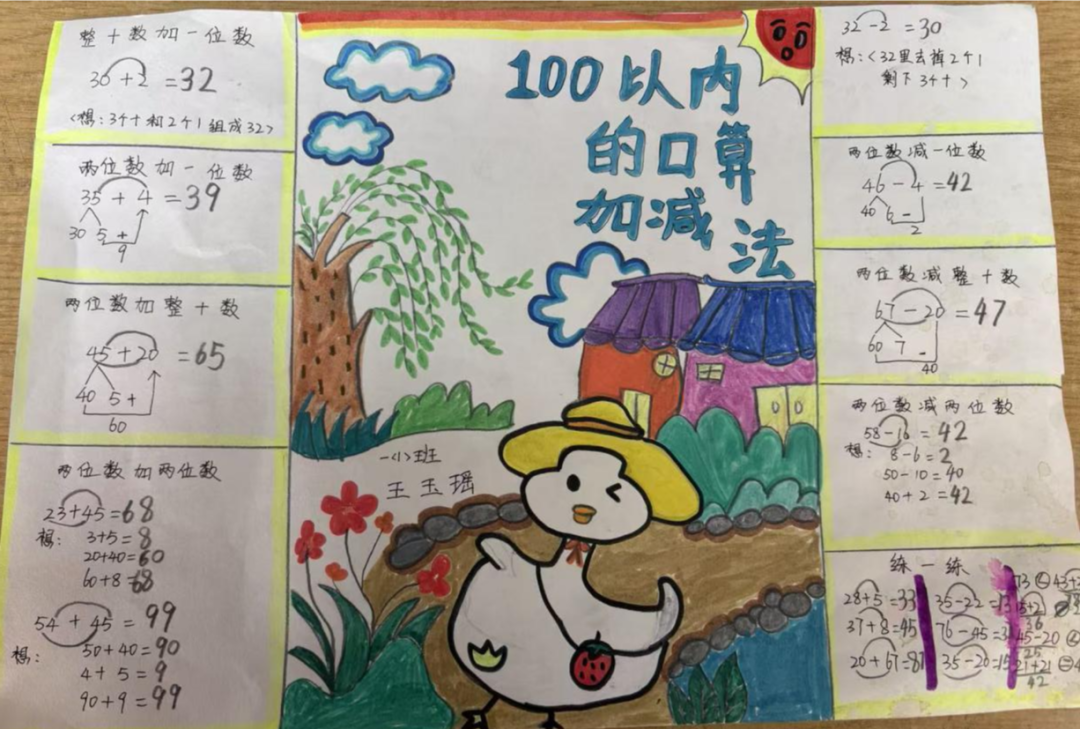 整十数加一位数
30+2=32
<想：3个十和2个1组成32>
两位数加一位数
35+4=39
30 5 +
9
两位数加整十数
45+20=65
40 5+
60
两位数加两位数
23+45=68
想：3+5=8
20+40=60
60+8=68
54+45=99
想：50+40=90
4+5=9
90+9=99
100以内
的口算
加减法
一(1)班
王玉瑶
32-2=30
想：<32里去掉2个1
剩下3个十>
两位数减一位数
46-4=42
40 6 -
2
两位数减整十数
67-20=47
60 7 -
40
两位数减两位数
58-16=42
想：8-6=2
50-10=40
40+2=42
练一练
28+5=33
37+8=45
20+67=87
35-22=13
76-45=31
35-20=15
36
45-20
25
21+21
42